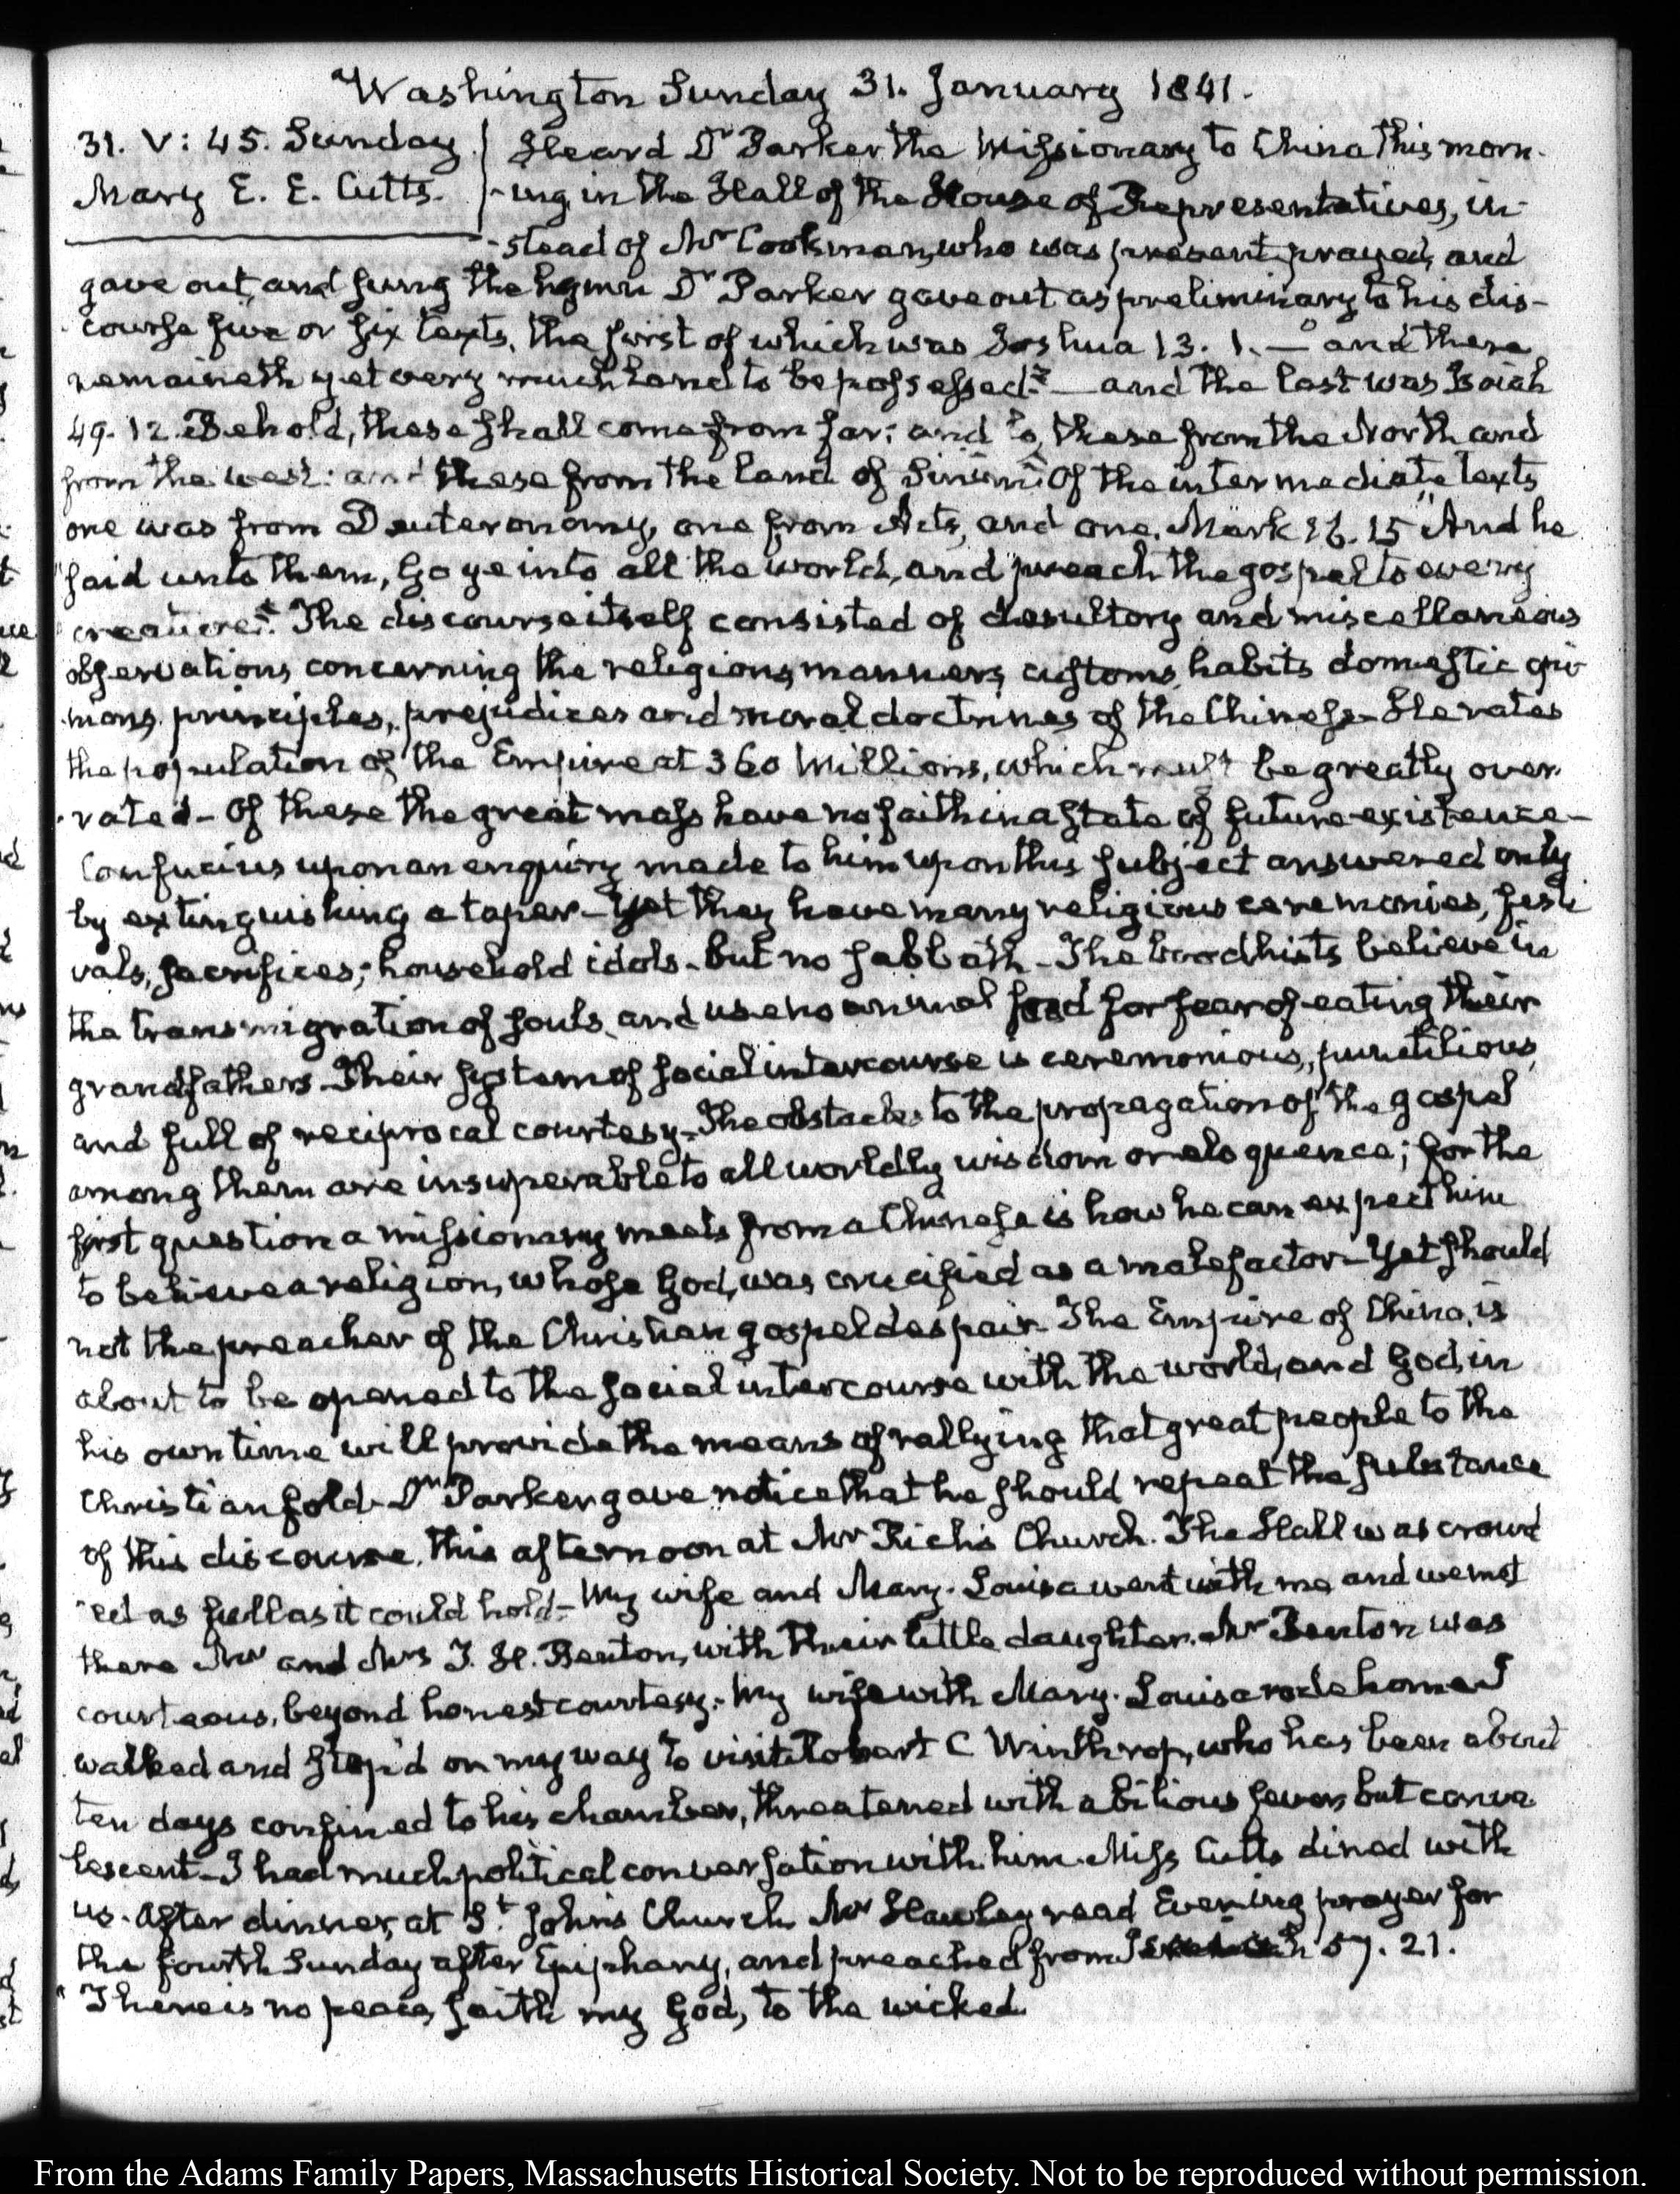 Washington Sunday 31. January 1841.
31. V: 45. Sunday
Mary E. E. Cutts.
Heard Dr Parker the Missionary to China this morn-
-ing, in the Hall of the House of Representatives, in-
-stead of Mr Cookman, who was present, prayed, and
gave out, and sung the hymn Dr Parker gave out as preliminary to his dis-
course five or six texts, the first of which was Joshua 13. 1. — "and there
remaineth yet very much land to be possessed" — and the last was Isaiah
49. 12. Behold, these shall come from far: and lo, these from the North and
from the west: and these from the land of Sinim" Of the intermediate texts
one was from Deuteronomy, one from Acts, and one, Mark 16. 15 "And he
"said unto them, Go ye into all the world, and preach the gospel to every
"creature". The discourse itself consisted of desultory and miscellaneous
observations concerning the religions, manners, customs, habits domestic opi-
nions, principles, prejudices and moral doctrines of the Chinese- He rates
the population of the Empire at 360 Millions, which must be greatly over-
-rated- Of these the great mass have no faith in a state of future existence-
Confucius upon an enquiry made to him upon this subject answered only
by extinguishing a taper- Yet they have many religious ceremonies, festi
vals, sacrifices, household idols- but no sabbath- The boodhists believe in
the transmigration of souls, and use no animal food for fear of eating their
grandfathers- Their system of social intercourse is ceremonious, punctilious,
and full of reciprocal courtesy- The obstacles to the propagation of the gospel
among them are insuperable to all worldly wisdom or eloquence; for the
first question a missionary meets from a Chinese is how he can expect him
to believe a religion, whose God, was crucified as a malefactor- Yet should
not the preacher of the Christian gospel despair- The Empire of China, is
about to be opened to the social intercourse with the world, and God, in
his own time will provide the means of rallying that great people to the
Christian fold- Dr Parker gave notice that he should repeat the substance
of this discourse, this afternoon at Mr Rich's Church. The Hall was crowd
-ed as full as it could hold- My wife and Mary-Louisa went with me and we met
there Mr and Mrs T. H. Benton, with their little daughter. Mr Benton was
courteous, beyond honest courtesy- My wife with Mary-Louisa rode home I
walked and stop'd on my way to visit Robert C Winthrop, who has been about
ten days confined to his chamber, threatened with a bilious fever but conva-
lescent- I had much political conversation with him- Miss Cutts dined with
us- After dinner, at St John's Church Mr Hawley read Evening prayer for
the fourth Sunday after Epiphany, and preached from 57. 21.
"There is no peace, saith my God, to the wicked
From the Adams Family Papers, Massachusetts Historical Society. Not to be reproduced without permission.